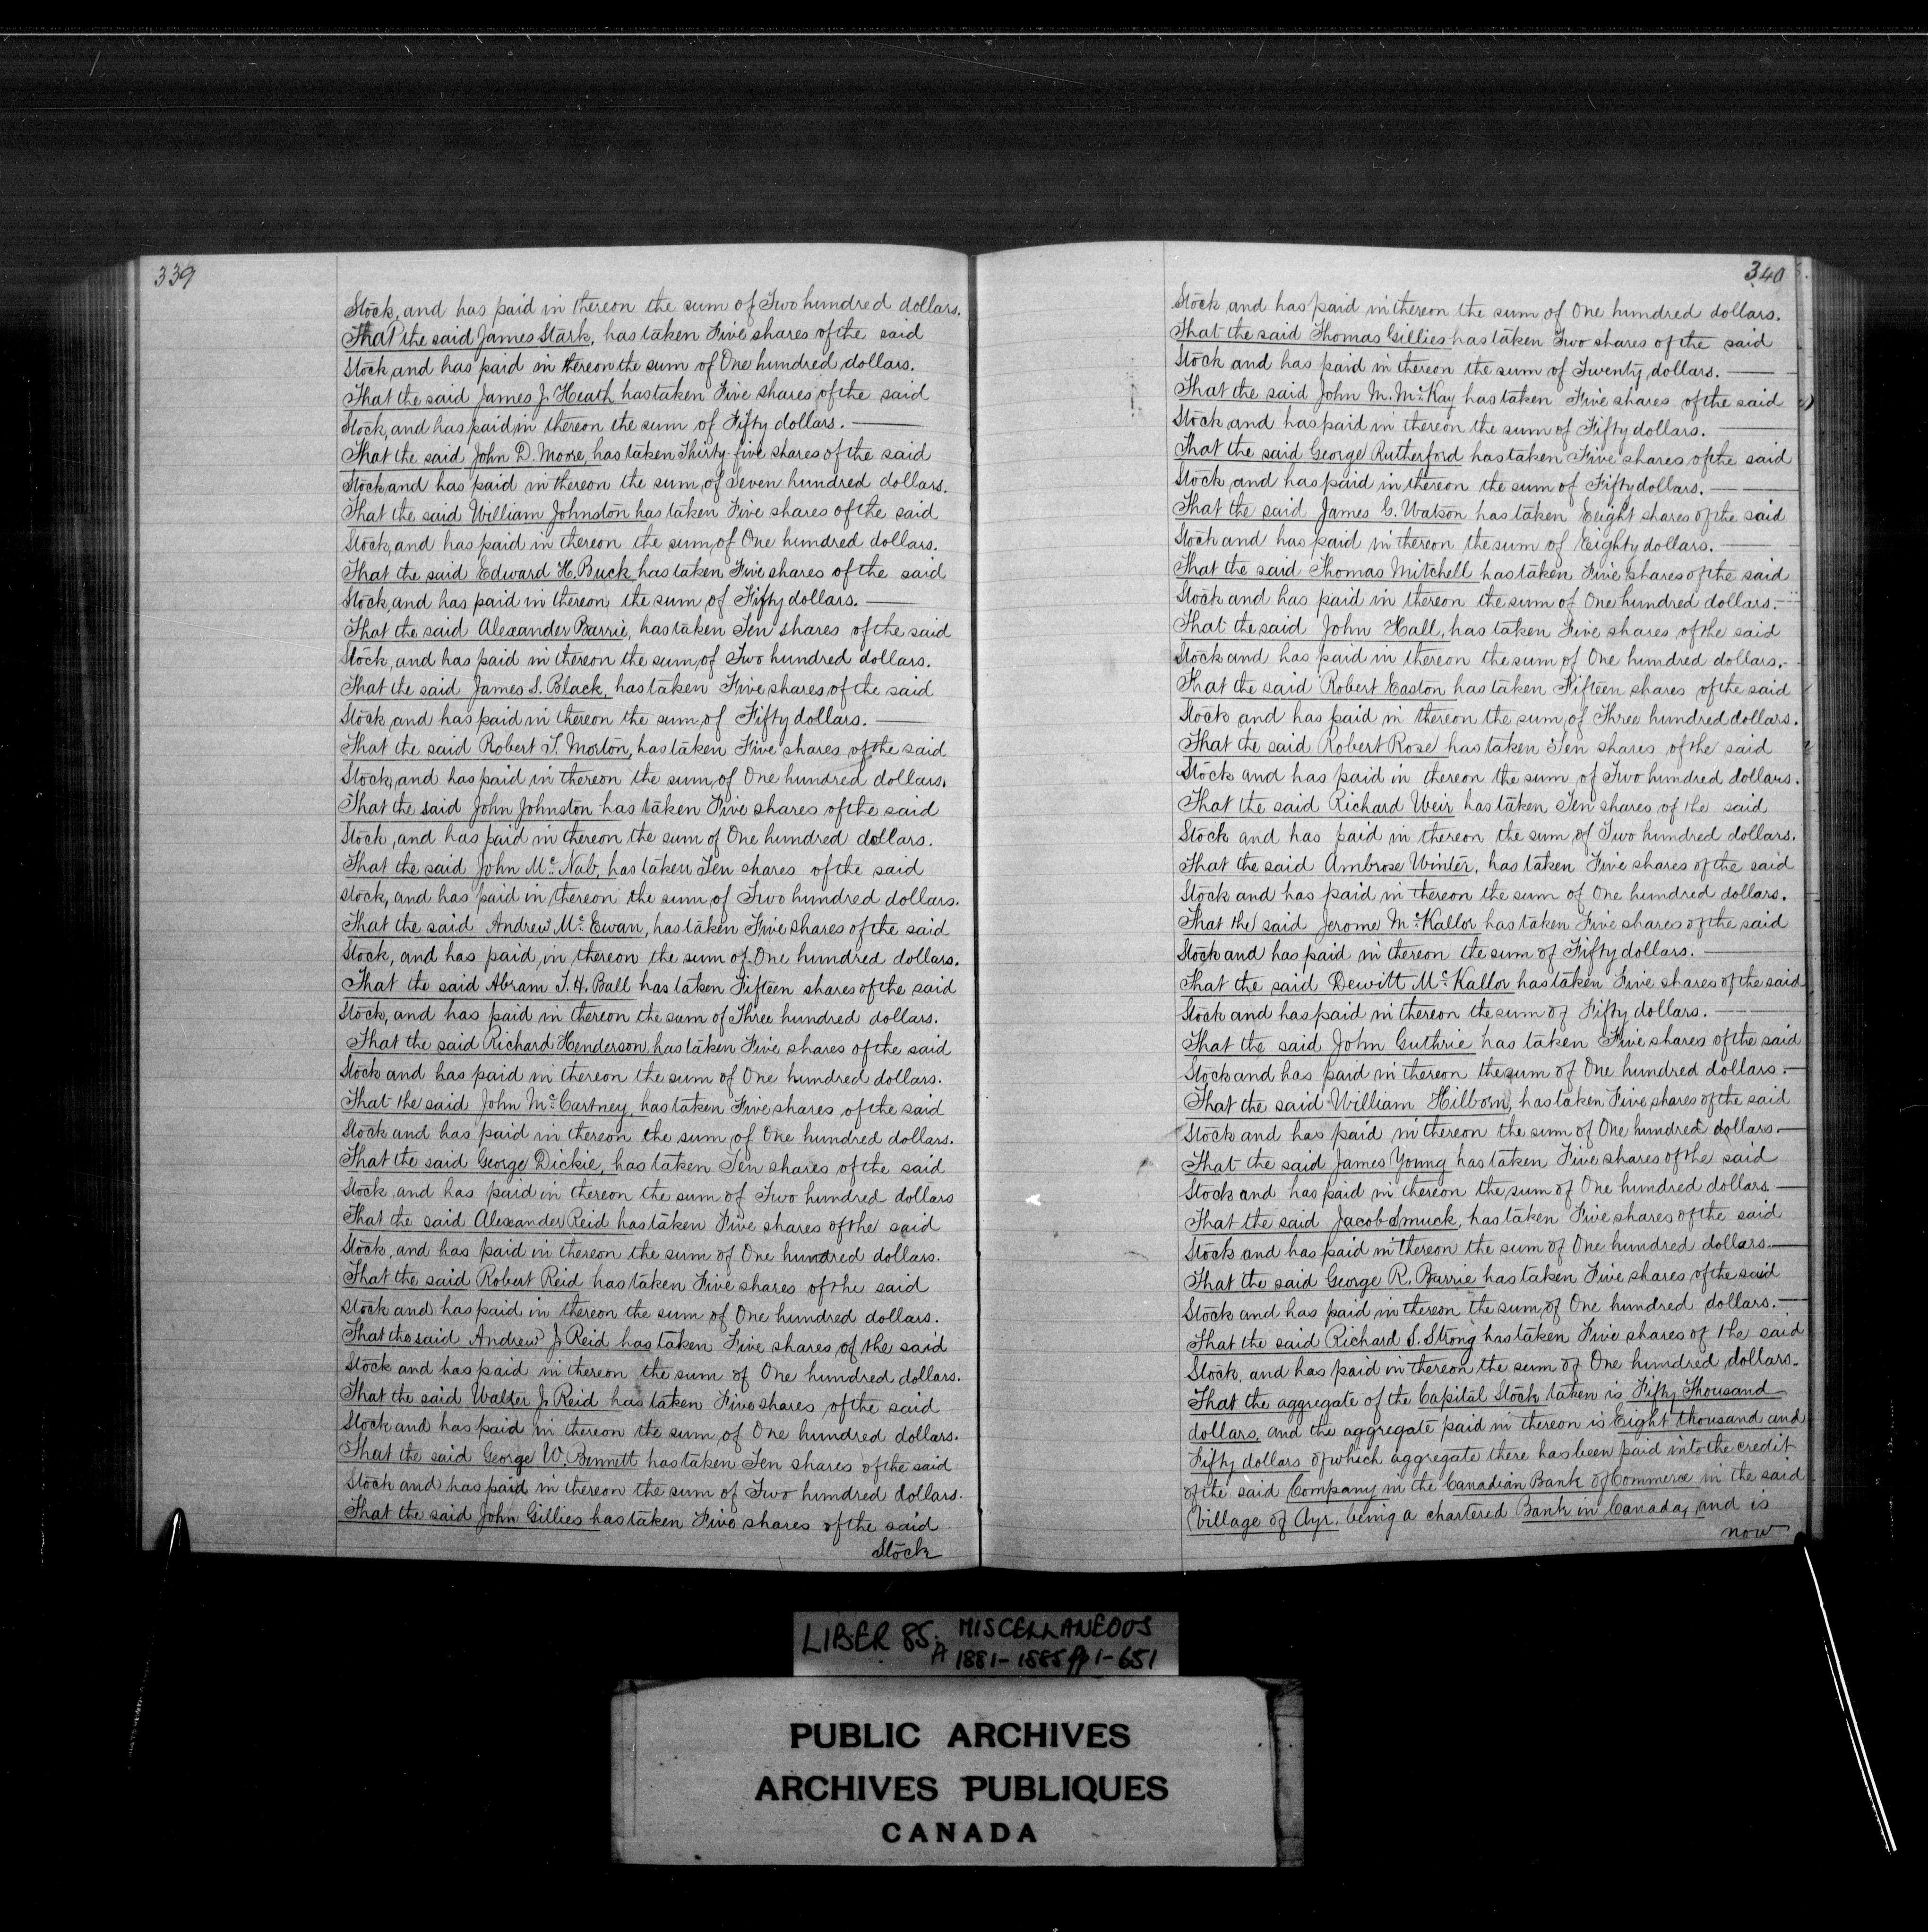 339
Stock, and has paid in thereon the sum of Two hundred dollars.
That the said James Stark, has taken Five shares of the said
Stock, and has paid in thereon the sum of One hundred dollars.
That the said James J. Heath has taken Five shares of the said
Stock, and has paid in thereon the sum of Fifty dollars. —
That the said John D. Moore, has taken Thirty-five shares of the said
Stock and has paid in thereon the sum of Seven hundred dollars.
That the said William Johnston has taken Five shares of the said
Stock, and has paid in thereon the sum of One hundred dollars.
That the said Edward H. Buck has taken Five shares of the said
Stock, and has paid in thereon the sum of Fifty dollars. —
That the said Alexander Barrie, has taken Ten shares of the said
Stock, and has paid in thereon the sum of Two hundred dollars.
That the said James S. Black, has taken Five shares of the said
Stock, and has paid in thereon the sum of Fifty dollars. —
That the said Robert T. Morton, has taken Five shares of the said
Stock, and has paid in thereon the sum of One hundred dollars.
That the said John Johnston has taken Five shares of the said
Stock, and has paid in thereon the sum of One hundred dollars.
That the said John Mc. Nab, has taken Ten shares of the said
Stock, and has paid in thereon the sum of Two hundred dollars.
That the said Andrew Mc. Ewan, has taken Five shares of the said
Stock, and has paid in thereon the sum of One hundred dollars.
That the said Abram T. H. Ball has taken Fifteen shares of the said
Stock, and has paid in thereon the sum of Three hundred dollars.
That the said Richard Henderson has taken Five shares of the said
Stock and has paid in thereon the sum of One hundred dollars.
That the said John Mc. Cartney, has taken Five shares of the said
Stock and has paid in thereon the sum of One hundred dollars.
That the said George Dickie, has taken Ten shares of the said
Stock, and has paid in thereon the sum of Two hundred dollars
That the said Alexander Reid has taken Five shares of the said
Stock, and has paid in thereon the sum of One hundred dollars.
That the said Robert Reid has taken Five shares of the said
Stock and has paid in thereon the sum of One hundred dollars.
That the said Andrew J. Reid has taken Five shares of the said
Stock and has paid in thereon the sum of One hundred dollars.
That the said Walter J. Reid has taken Five shares of the said
Stock and has paid in thereon the sum of One hundred dollars.
That the said George W. Bennett has taken Ten shares of the said
Stock and has paid in thereon the sum of Two hundred dollars.
That the said John Gillies has taken Five shares of the said
Stock
340
Stock and has paid in thereon the sum of One hundred dollars.
That the said Thomas Gillies has taken Two shares of the said
Stock and has paid in thereon the sum of Twenty dollars. —
That the said John M. Mc. Kay has taken Five shares of the said
Stock and has paid in thereon the sum of Fifty dollars. —
That the said George Rutherford has taken Five shares of the said
Stock and has paid in thereon the sum of Fifty dollars. —
That the said James G. Watson has taken Eeight shares of the said
Stock and has paid in thereon the sum of Eighty dollars. —
That the said Thomas Mitchell has taken Five shares of the said
Stock and has paid in thereon the sum of One hundred dollars. —
That the said John Hall, has taken Five shares of the said
Stock and has paid in thereon the sum of One hundred dollars. —
That the said Robert Easton has taken Fifteen shares of the said
Stock and has paid in thereon the sum of Three hundred dollars.
That the said Robert Rose has taken Ten shares of the said
Stock and has paid in thereon the sum of Two hundred dollars.
That the said Richard Weir has taken Ten shares of the said
Stock and has paid in thereon the sum of Two hundred dollars.
That the said Ambrose Winter, has taken Five shares of the said
Stock and has paid in thereon the sum of One hundred dollars.
That the said Jerome Mc. Kallor has taken Five shares of the said
Stock and has paid in thereon the sum of Fifty dollars. —
That the said Dewitt Mc. Kallor has taken Five shares of the said
Stock and has paid in thereon the sum of Fifty dollars. —
That the said John Guthrie has taken Five shares of the said
Stock and has paid in thereon the sum of One hundred dollars. —
That the said William Hilborn, has taken Five shares of the said
Stock and has paid in thereon the sum of One hundred dollars. —
That the said James Young has taken Five shares of the said
Stock and has paid in thereon the sum of One hundred dollars. —
That the said Jacob Smuck, has taken Five shares of the said
Stock and has paid in thereon the sum of One hundred dollars. —
That the said George R. Barrie has taken Five shares of the said
Stock and has paid in thereon the sum of One hundred dollars. —
That the said Richard S. Strong has taken Five shares of the said
Stock, and has paid in thereon the sum of One hundred dollars.
That the aggregate of the Capital Stock taken is Fifty Thousand
dollars, and the aggregate paid in thereon is Eight thousand and
Fifty dollars of which aggregate there has been paid into the credit
of the said Company in the Canadian Bank of Commerce in the said
Village of Ayr, being a chartered Bank in Canada, and is
now
LIBER 85A: MISCELLANEOUS
1881-1885 pp 1-651
PUBLIC ARCHIVES
ARCHIVES PUBLIQUES
CANADA